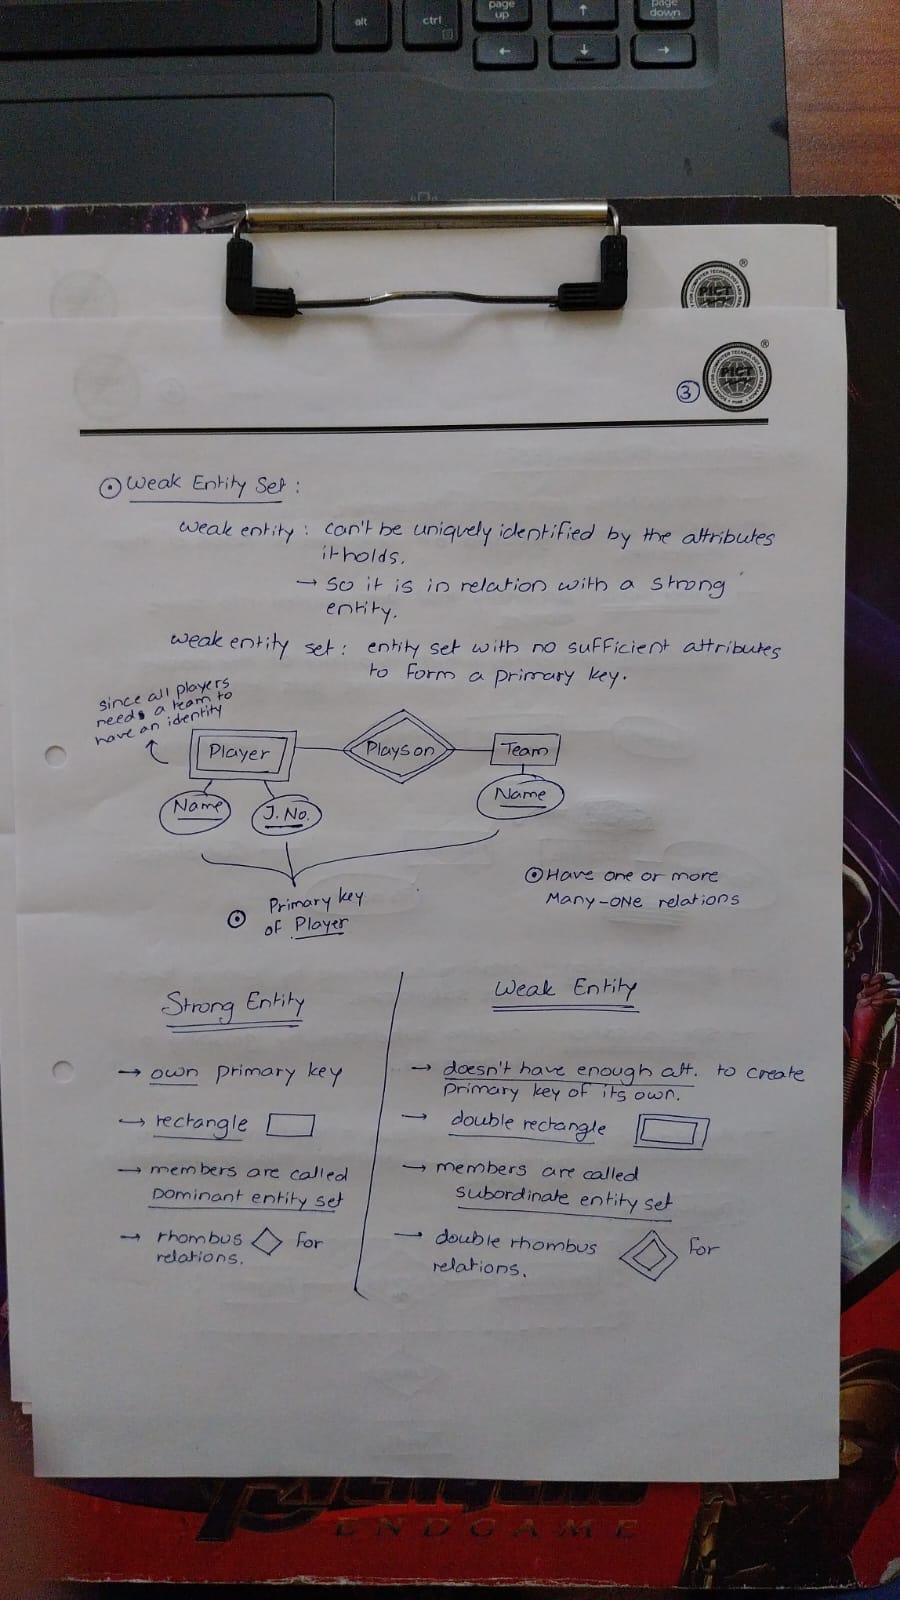 alt
ctrl
page up
page down
PICT
®
SOCIETY FOR COMPUTER TECHNOLOGY AND RESEARCH
PICT
3
Weak Entity Set :
weak entity : can't be uniquely identified by the attributes
it holds.
→ so it is in relation with a strong
entity.
weak entity set : entity set with no sufficient attributes
to form a primary key.
since all players
needs a team to
have an identity
Player
Plays on
Team
Name
J. No.
Name
Primary key
of Player
Have one or more
Many-ONe relations
Strong Entity
→ own primary key
→ rectangle
→ members are called
Dominant entity set
→ rhombus for
relations.
Weak Entity
→ doesn't have enough att. to create
primary key of its own.
→ double rectangle
→ members are called
subordinate entity set
→ double rhombus for
relations.
ENDGAME